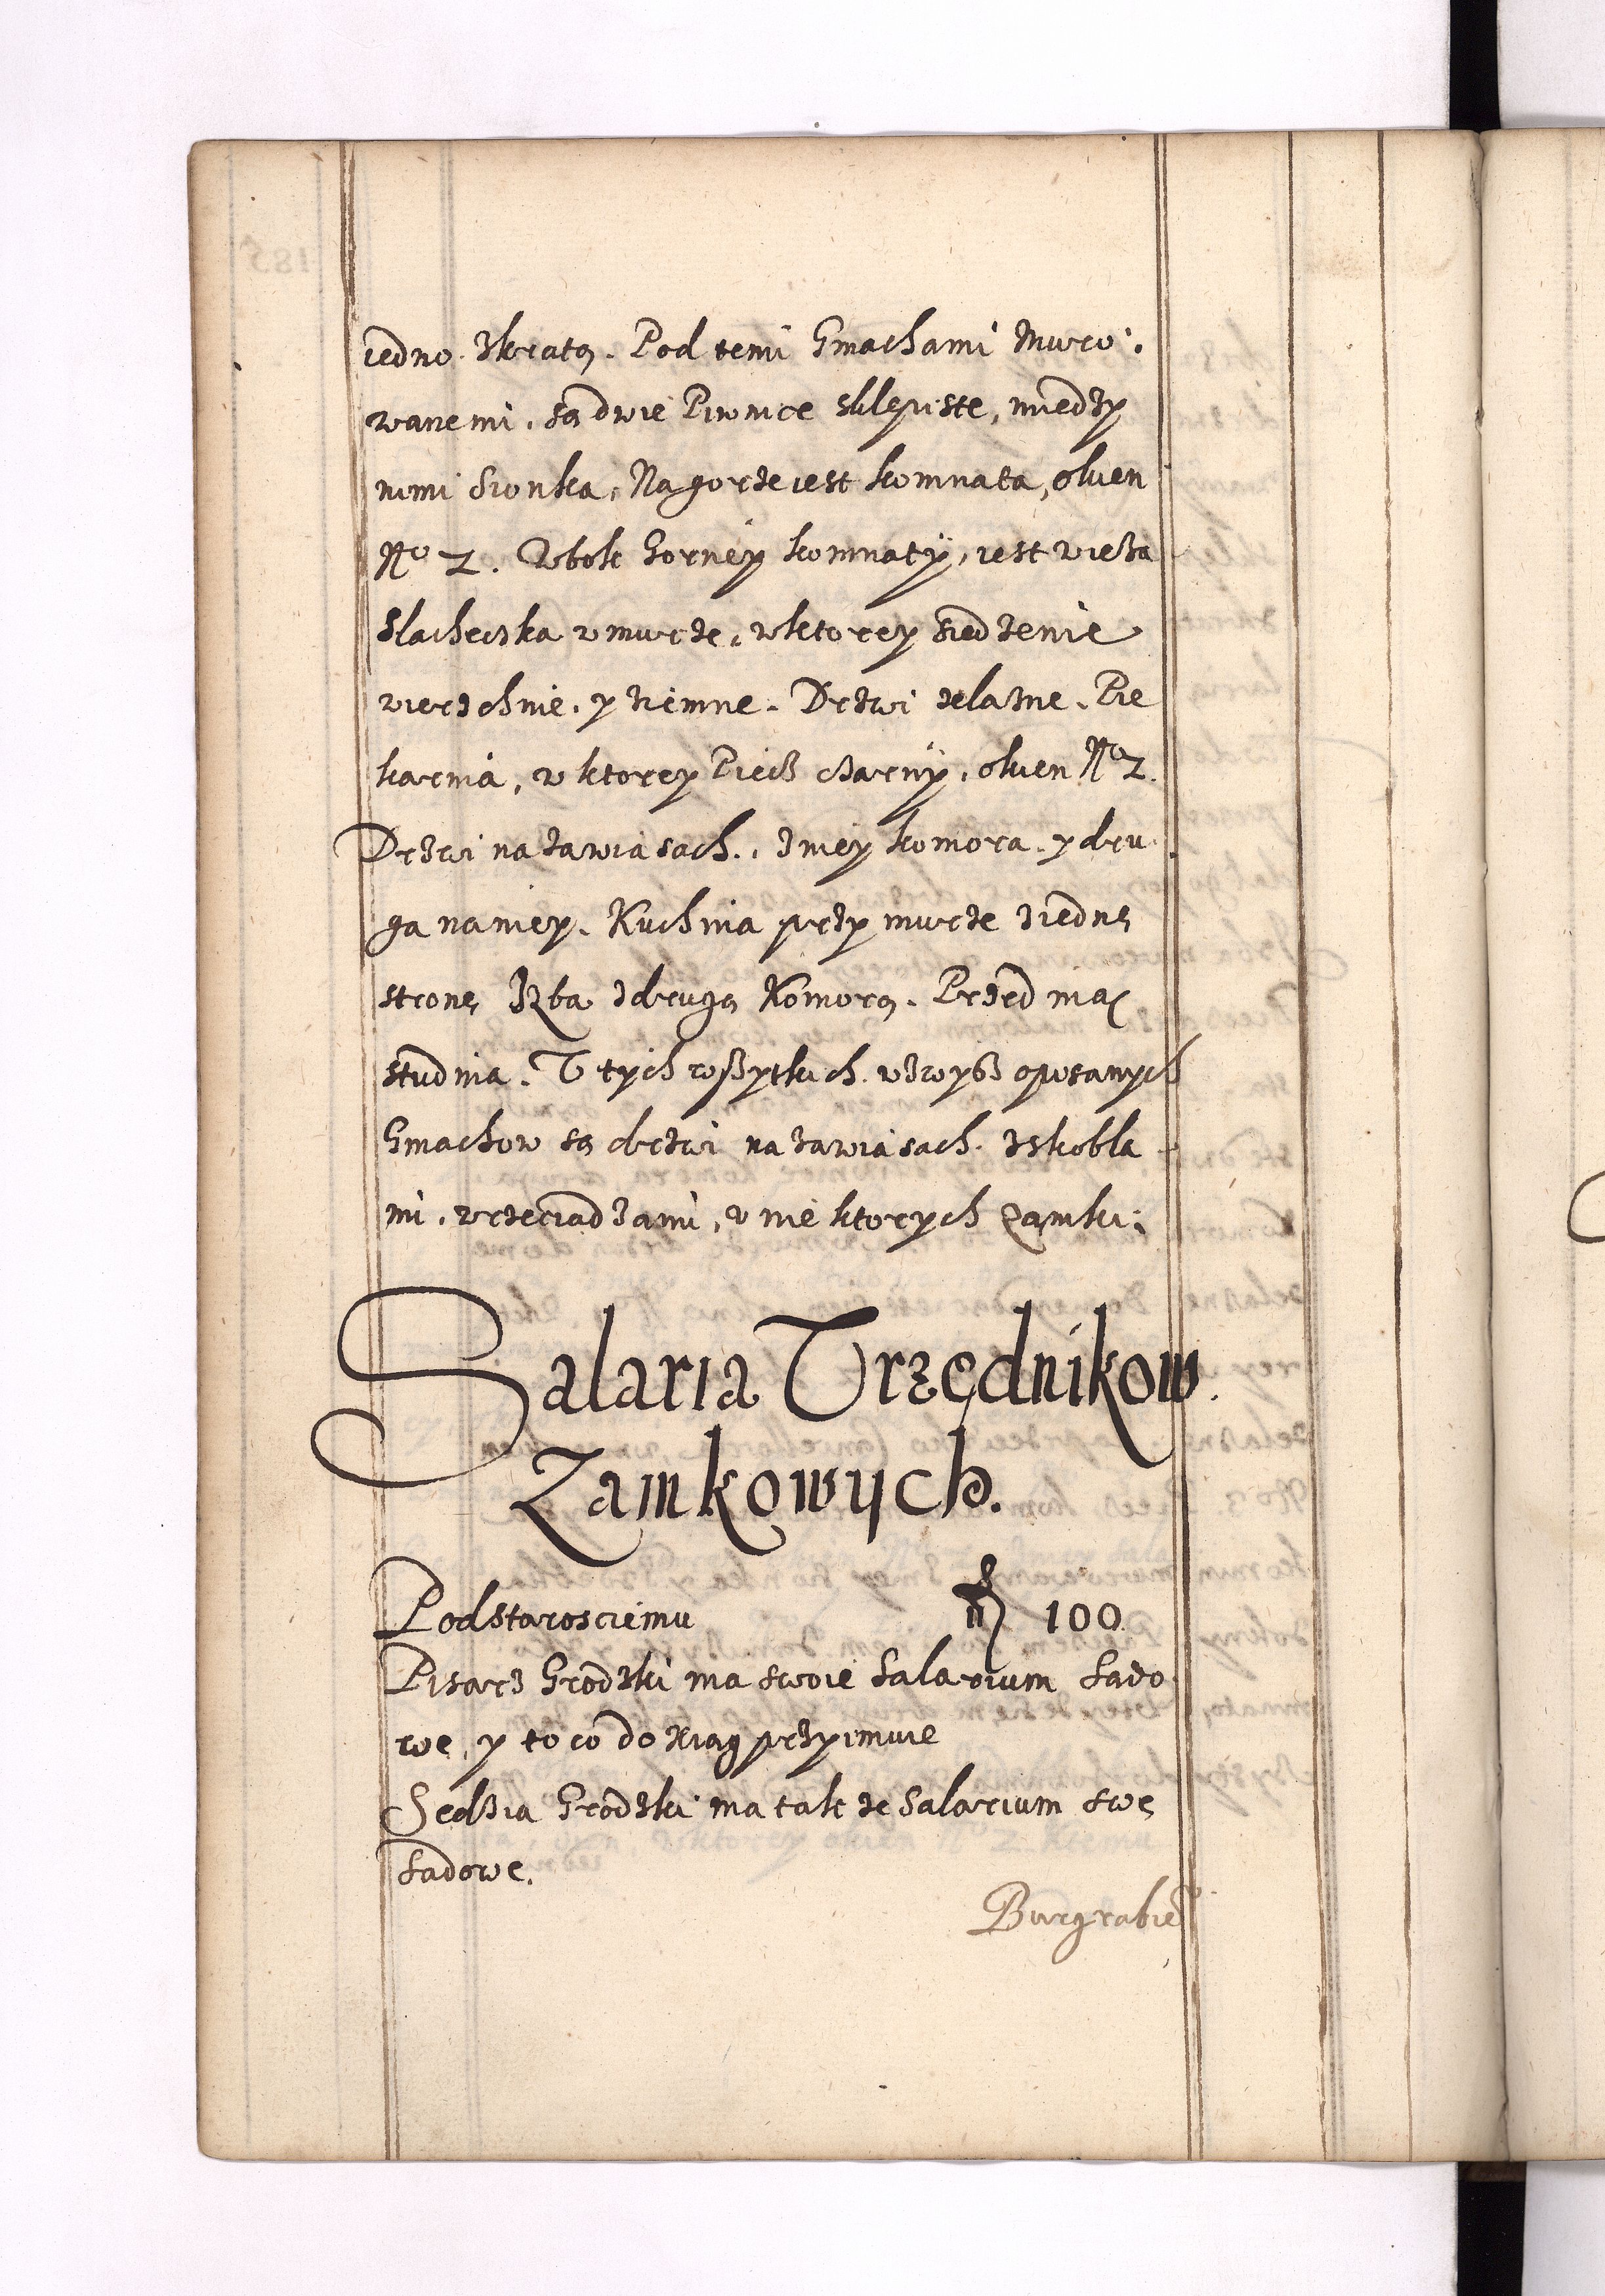 iedno. zkratą. Pod temi Gmachami Muro:
wanemi, są dwie Piwnice sklepiste, miedzy
nimi Sionka, Na gorze iest komnata, okien
No 2. Wbok Gorney komnatÿ, iest wieza
Slachecka w murze, w ktorey siedzenie
wierzchnie, y ziemne. Drzwi zelazne. Pie
karnia, w ktorey Piecz czarnÿ, okien No 2.
Drzwi na zawiasach, z niey komora y dru
ga na niey. Kuchnia przy murze z iednę
stronę Izba z drugą Komorą. Przed nią
studnia. U tych wszytkich wzwysz opisanych
Gmachow są drzwi na zawiasach z skobla
mi, wrzeciadzami, u niektorych Zamki:
Salaria Urzędnikow
Zamkowych.
Podstarosciemu 100
Pisarz Grodzki ma swoie Salarium Sądo
we, y to co do Xiąg przyimuie
Sędzia Grodzki ma takze Salarium swe
Sądowe.
Burgrabie